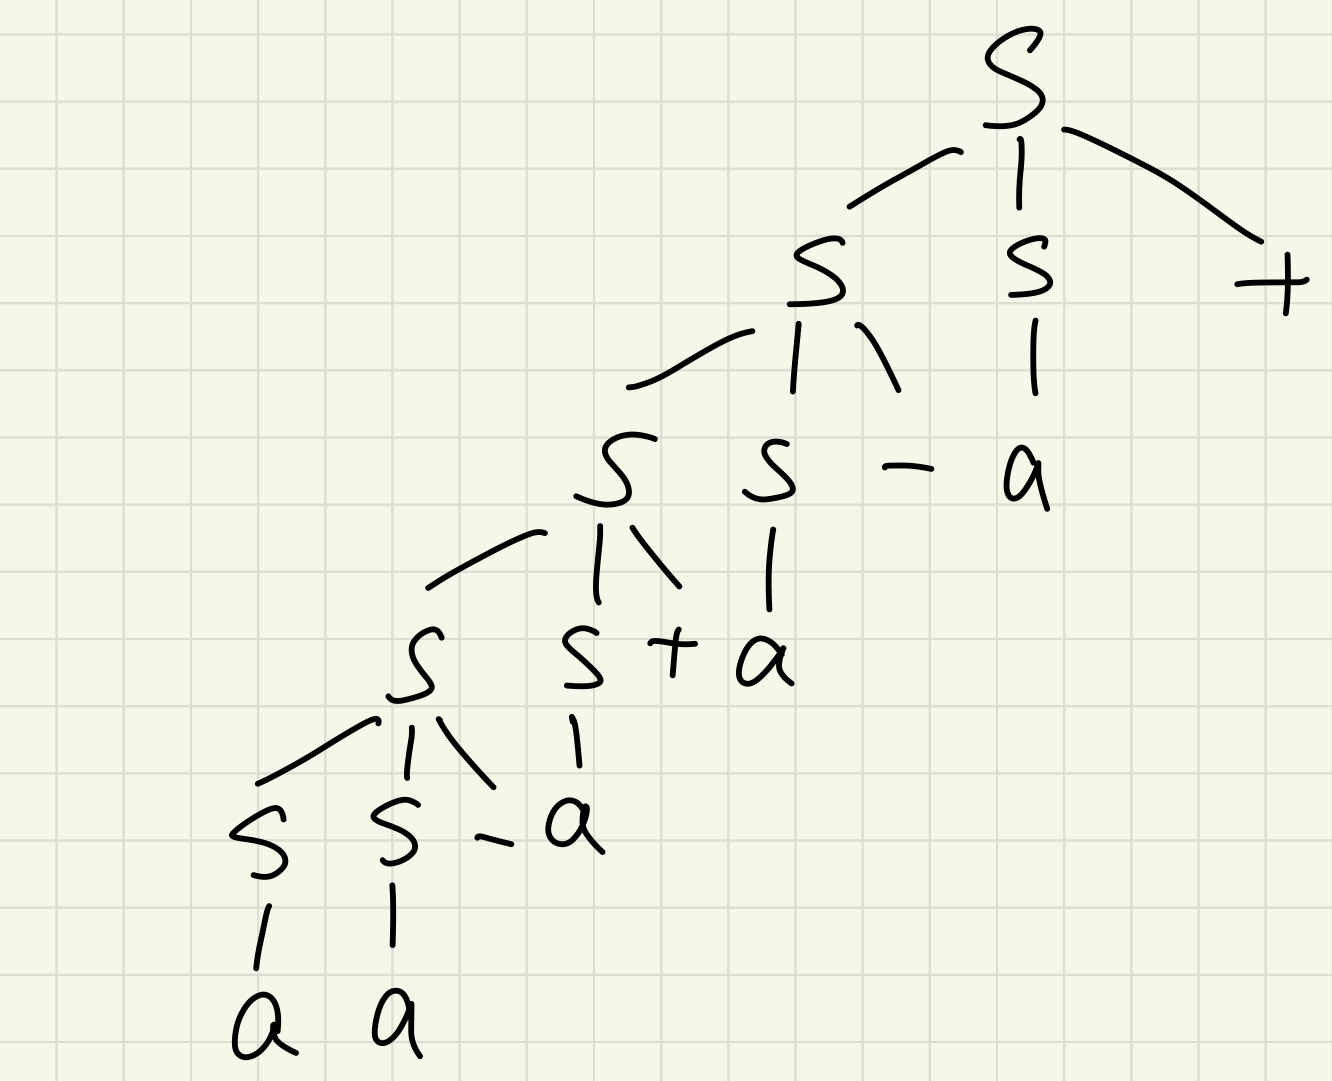 S
S S +
S S - a
S S + a
S S - a
a a